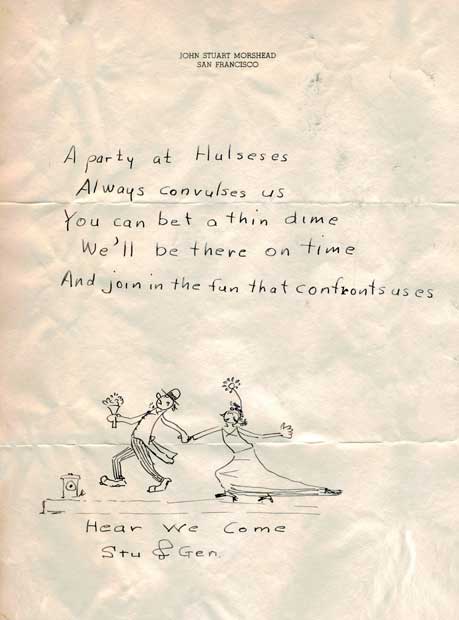 JOHN STUART MORSHEAD
SAN FRANCISCO
A party at Hulseses
Always convulses us
You can bet a thin dime
We'll be there on time
And join in the fun that confronts us es
Hear We Come
Stu & Gen.